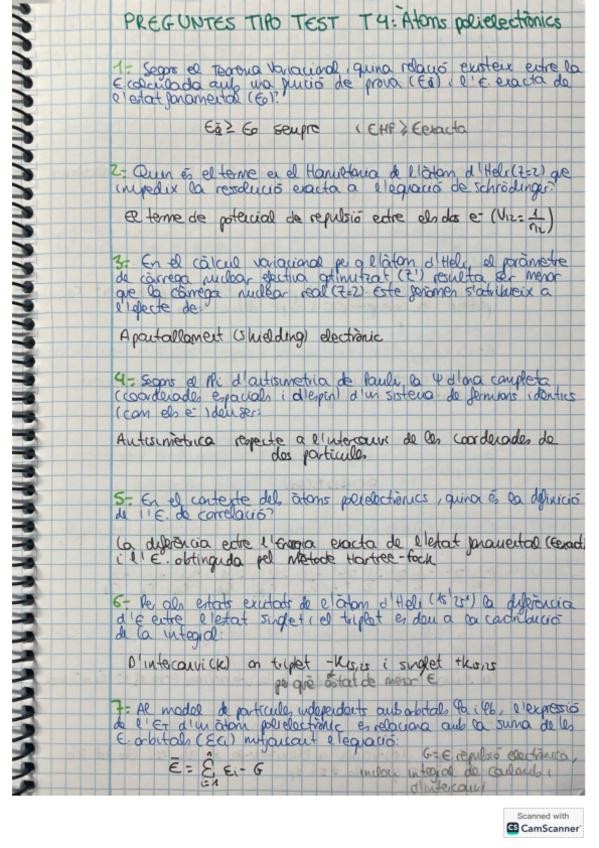 PREGUNTES TIPO TEST T4: Àtoms polielectrònics
1- Segons el Teorema Variacional, quina relació existeix entre la
E calculada amb una funció de prova (Eā) i l'E exacta de
l'estat fonamental (E0)?
Eā ≥ E0 sempre (EHF ≥ Eexacta
2- Quin és el terme en el Hamiltonià de l'àtom d'Heli (z=2) que
impedix la resolució exacta a l'equació de schrödinger?
El terme de potencial de repulsió entre els dos e- (V12 = 1/r12)
3- En el càlcul variacional per a l'àtom d'Heli, el paràmetre
de càrrega nuclear efectiva optimitzat (z') resulta ser menor
que la càrrega nuclear real (z=2). Este fenomen s'atribueix a
l'efecte de:
Apantallament (shielding) electrònic
4- Segons el Pi d'antisimetria de Pauli, la Ψ d'ona completa
(coordenades espacials i d'espín) d'un sistema de fermions idèntics
(com els e-) deu ser:
Antisimètrica respecte a l'intercanvi de les coordenades de
dos partícules
5- En el context dels àtoms polielectrònics, quina és la definició
de l'E. de correlació?
La diferència entre l'Energia exacta de l'estat fonamental (Eexact
i l'E. obtinguda pel Mètode Hartree-fock
6- Per als estats excitats de l'àtom d'Heli (1s¹2s¹) la diferència
d'E entre l'estat singlet i el triplet es deu a la contribució
de la integral:
D'intercanvi (K) on triplet -K1s,2s i singlet +K1s,2s
per què estat de menor E
7- Al model de partícules independents amb orbitals φa i φb, l'expressió
de l'ET d'un àtom polielectrònic es relaciona amb la suma de les
E. orbitals (Σεi) mitjançant l'equació:
Ē = Σ εi - G
n
i=1
G = E repulsió electrònica,
inclou integral de coulomb i
d'intercanvi
Scanned with
CS CamScanner